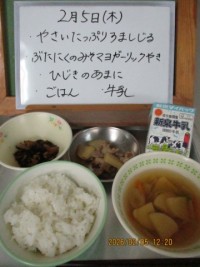 2月5日(木)
・やさいたっぷりごましじる
ぶたにくのみそマヨガーリックやき
・ひじきのあまに
・ごはん ・牛乳
牛乳
12:20